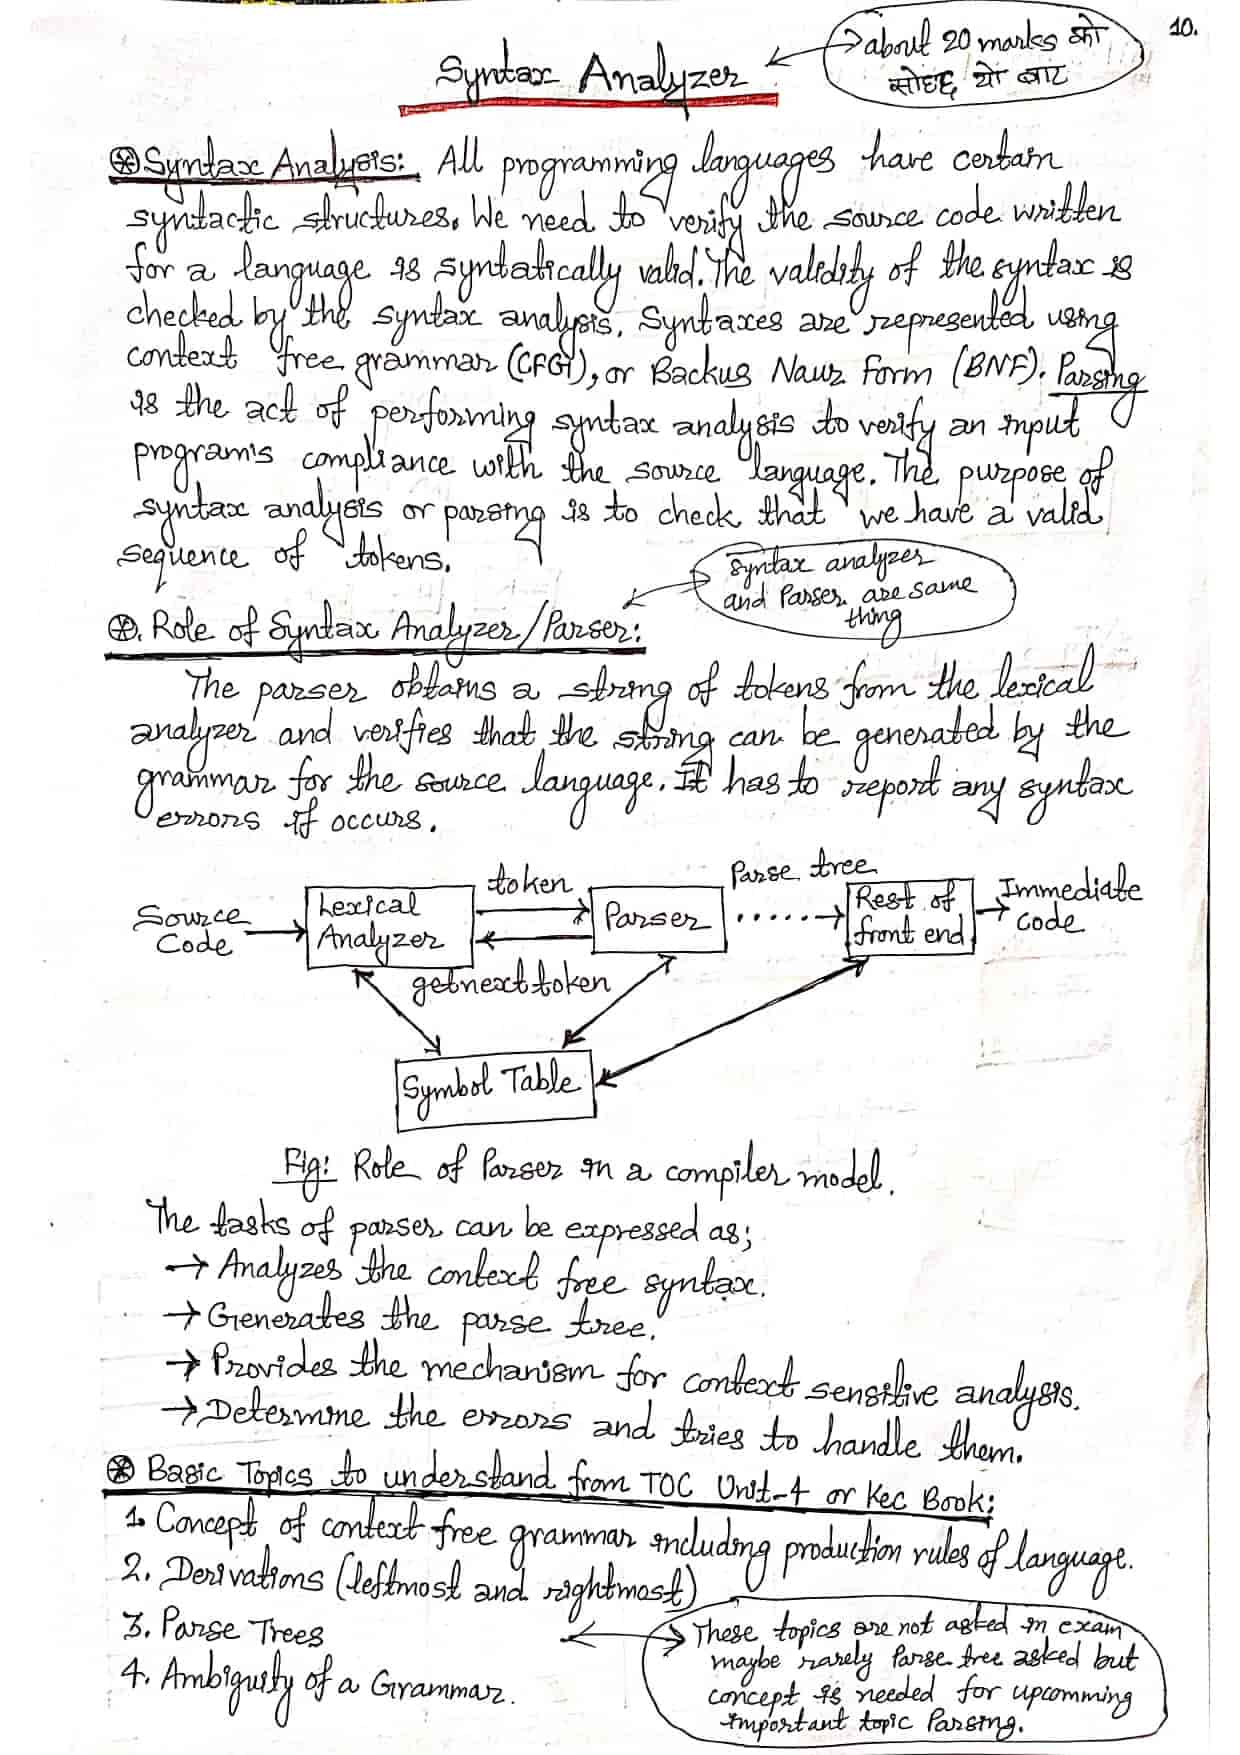 10.
Syntax Analyzer
about 20 marks को
सोहद्द यो बाट
Syntax Analysis: All programming languages have certain
syntactic structures. We need to verify the source code written
for a language is syntatically valid. The validity of the syntax is
checked by the syntax analysis. Syntaxes are represented using
context free grammar (CFG), or Backus Naur Form (BNF). Parsing
is the act of performing syntax analysis to verify an input
program's compliance with the source language. The purpose of
syntax analysis or parsing is to check that we have a valid
sequence of tokens.
Syntax analyzer
and Parser are same
thing
Role of Syntax Analyzer/Parser:
The parser obtains a string of tokens from the lexical
analyzer and verifies that the string can be generated by the
grammar for the source language. It has to report any syntax
errors if occurs.
Source
Code
Lexical
Analyzer
token
getnexttoken
Parser
Parse tree
Rest of
front end
Immediate
code
Symbol Table
Fig: Role of Parser in a compiler model.
The tasks of parser can be expressed as;
→ Analyzes the context free syntax.
→ Generates the parse tree.
→ Provides the mechanism for context sensitive analysis.
→ Determine the errors and tries to handle them.
Basic Topics to understand from TOC Unit-4 or Kec Book:
1. Concept of context free grammar including production rules of language.
2. Derivations (leftmost and rightmost)
3. Parse Trees
4. Ambiguity of a Grammar.
These topics are not asked in exam
maybe rarely Parse tree asked but
concept is needed for upcomming
important topic Parsing.